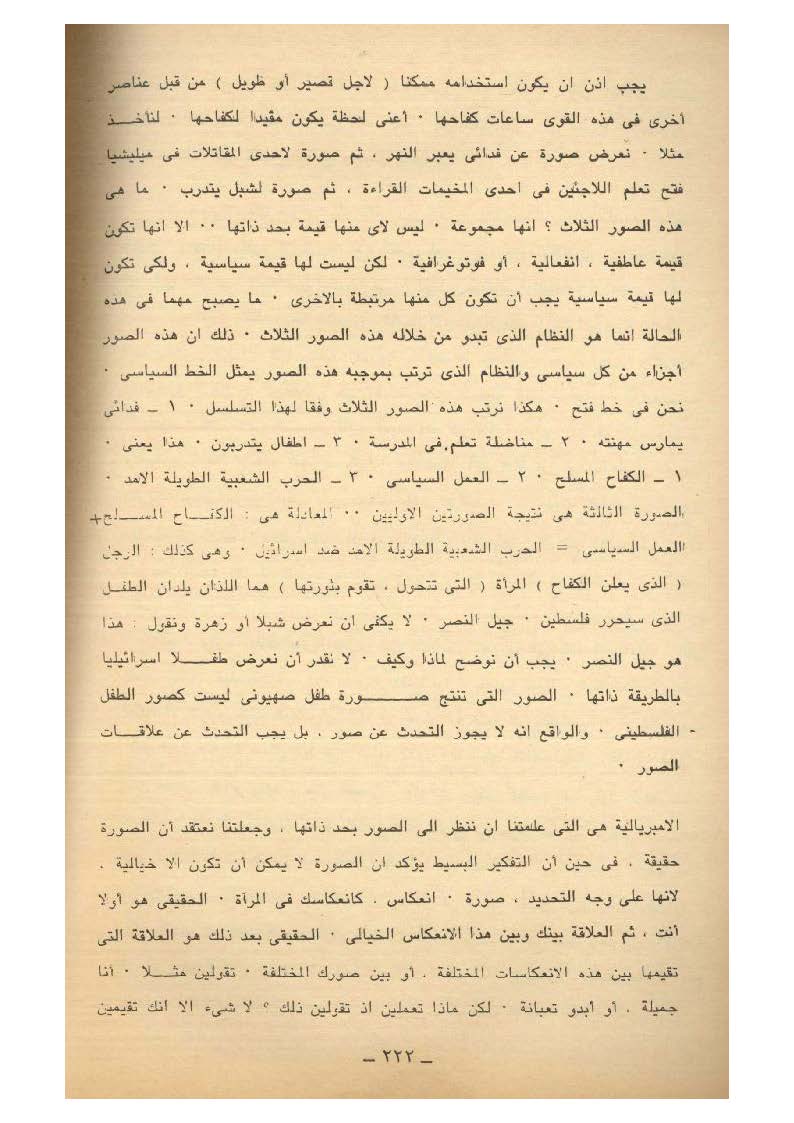 يجب اذن ان يكون استخدامه ممكنا ( لاجل قصير أو طويل ) من قبل عناصر
أخرى فى هذه القوى ساعات كفاحها ٠ أعنى لحظة يكون مفيدا لكفاحها ٠ لنأخـــذ
مثلا ٠ نعرض صورة عن فدائى يعبر النهر ، ثم صورة لاحدى المقاتلات فى ميليشيا
فتح تعلم اللاجئين فى احدى المخيمات القراءة ، ثم صورة لشبل يتدرب ٠ ما هى
هذه الصور الثلاث ؟ انها مجموعة ٠ ليس لاى منها قيمة بحد ذاتها ٠٠ الا انها تكون
قيمة عاطفية ، انفعالية ، أو فوتوغرافية ٠ لكن ليست لها قيمة سياسية ، ولكى تكون
لها قيمة سياسية يجب أن تكون كل منها مرتبطة بالاخرى ٠ ما يصبح مهما فى هذه
الحالة انما هو النظام الذى تبدو من خلاله هذه الصور الثلاث ٠ ذلك ان هذه الصور
أجزاء من كل سياسى والنظام الذى ترتب بموجبه هذه الصور يمثل الخط السياسى ٠
نحن فى خط فتح ٠ هكذا نرتب هذه الصور الثلاث وفقا لهذا التسلسل ٠ ١ ـ فدائى
يمارس مهنته ٠ ٢ ـ مناضلة تعلم فى المدرسة ٠ ٣ ـ اطفال يتدربون ٠ هذا يعنى ٠
١ ـ الكفاح المسلح ٠ ٢ ـ العمل السياسى ٠ ٣ ـ الحرب الشعبية الطويلة الامد ٠
الصورة الثالثة هى نتيجة الصورتين الاوليين ٠٠ المعادلة هى : الكفـــاح المســـلح+
العمل السياسى = الحرب الشعبية الطويلة الامد ضد اسرائيل ٠ وهى كذلك : الرجل
( الذى يعلن الكفاح ) المرأة ( التى تتحول ، تقوم بثورتها ) هما اللذان يلدان الطفــل
الذى سيحرر فلسطين ٠ جيل النصر ٠ لا يكفى ان نعرض شبلا أو زهرة ونقول : هذا
هو جيل النصر ٠ يجب أن نوضح لماذا وكيف ٠ لا نقدر أن نعرض طفـــلا اسرائيليا
بالطريقة ذاتها ٠ الصور التى تنتج صـــــورة طفل صهيونى ليست كصور الطفل
الفلسطينى ٠ والواقع انه لا يجوز التحدث عن صور ، بل يجب التحدث عن علاقـــات
الصور ٠
الامبريالية هى التى علمتنا ان ننظر الى الصور بحد ذاتها ، وجعلتنا نعتقد أن الصورة
حقيقة ، فى حين أن التفكير البسيط يؤكد ان الصورة لا يمكن أن تكون الا خيالية ،
لانها على وجه التحديد ، صورة ٠ انعكاس ، كانعكاسك فى المرآة ٠ الحقيقى هو أولا
أنت ، ثم العلاقة بينك وبين هذا الانعكاس الخيالى ٠ الحقيقى بعد ذلك هو العلاقة التى
تقيمها بين هذه الانعكاسات المختلفة ، أو بين صورك المختلفة ٠ تقولين مثـــلا ٠ أنا
جميلة ، أو أبدو تعبانة ٠ لكن ماذا تعملين اذ تقولين ذلك ؟ لا شىء الا انك تقيمين
ـ ٢٢٢ ـ